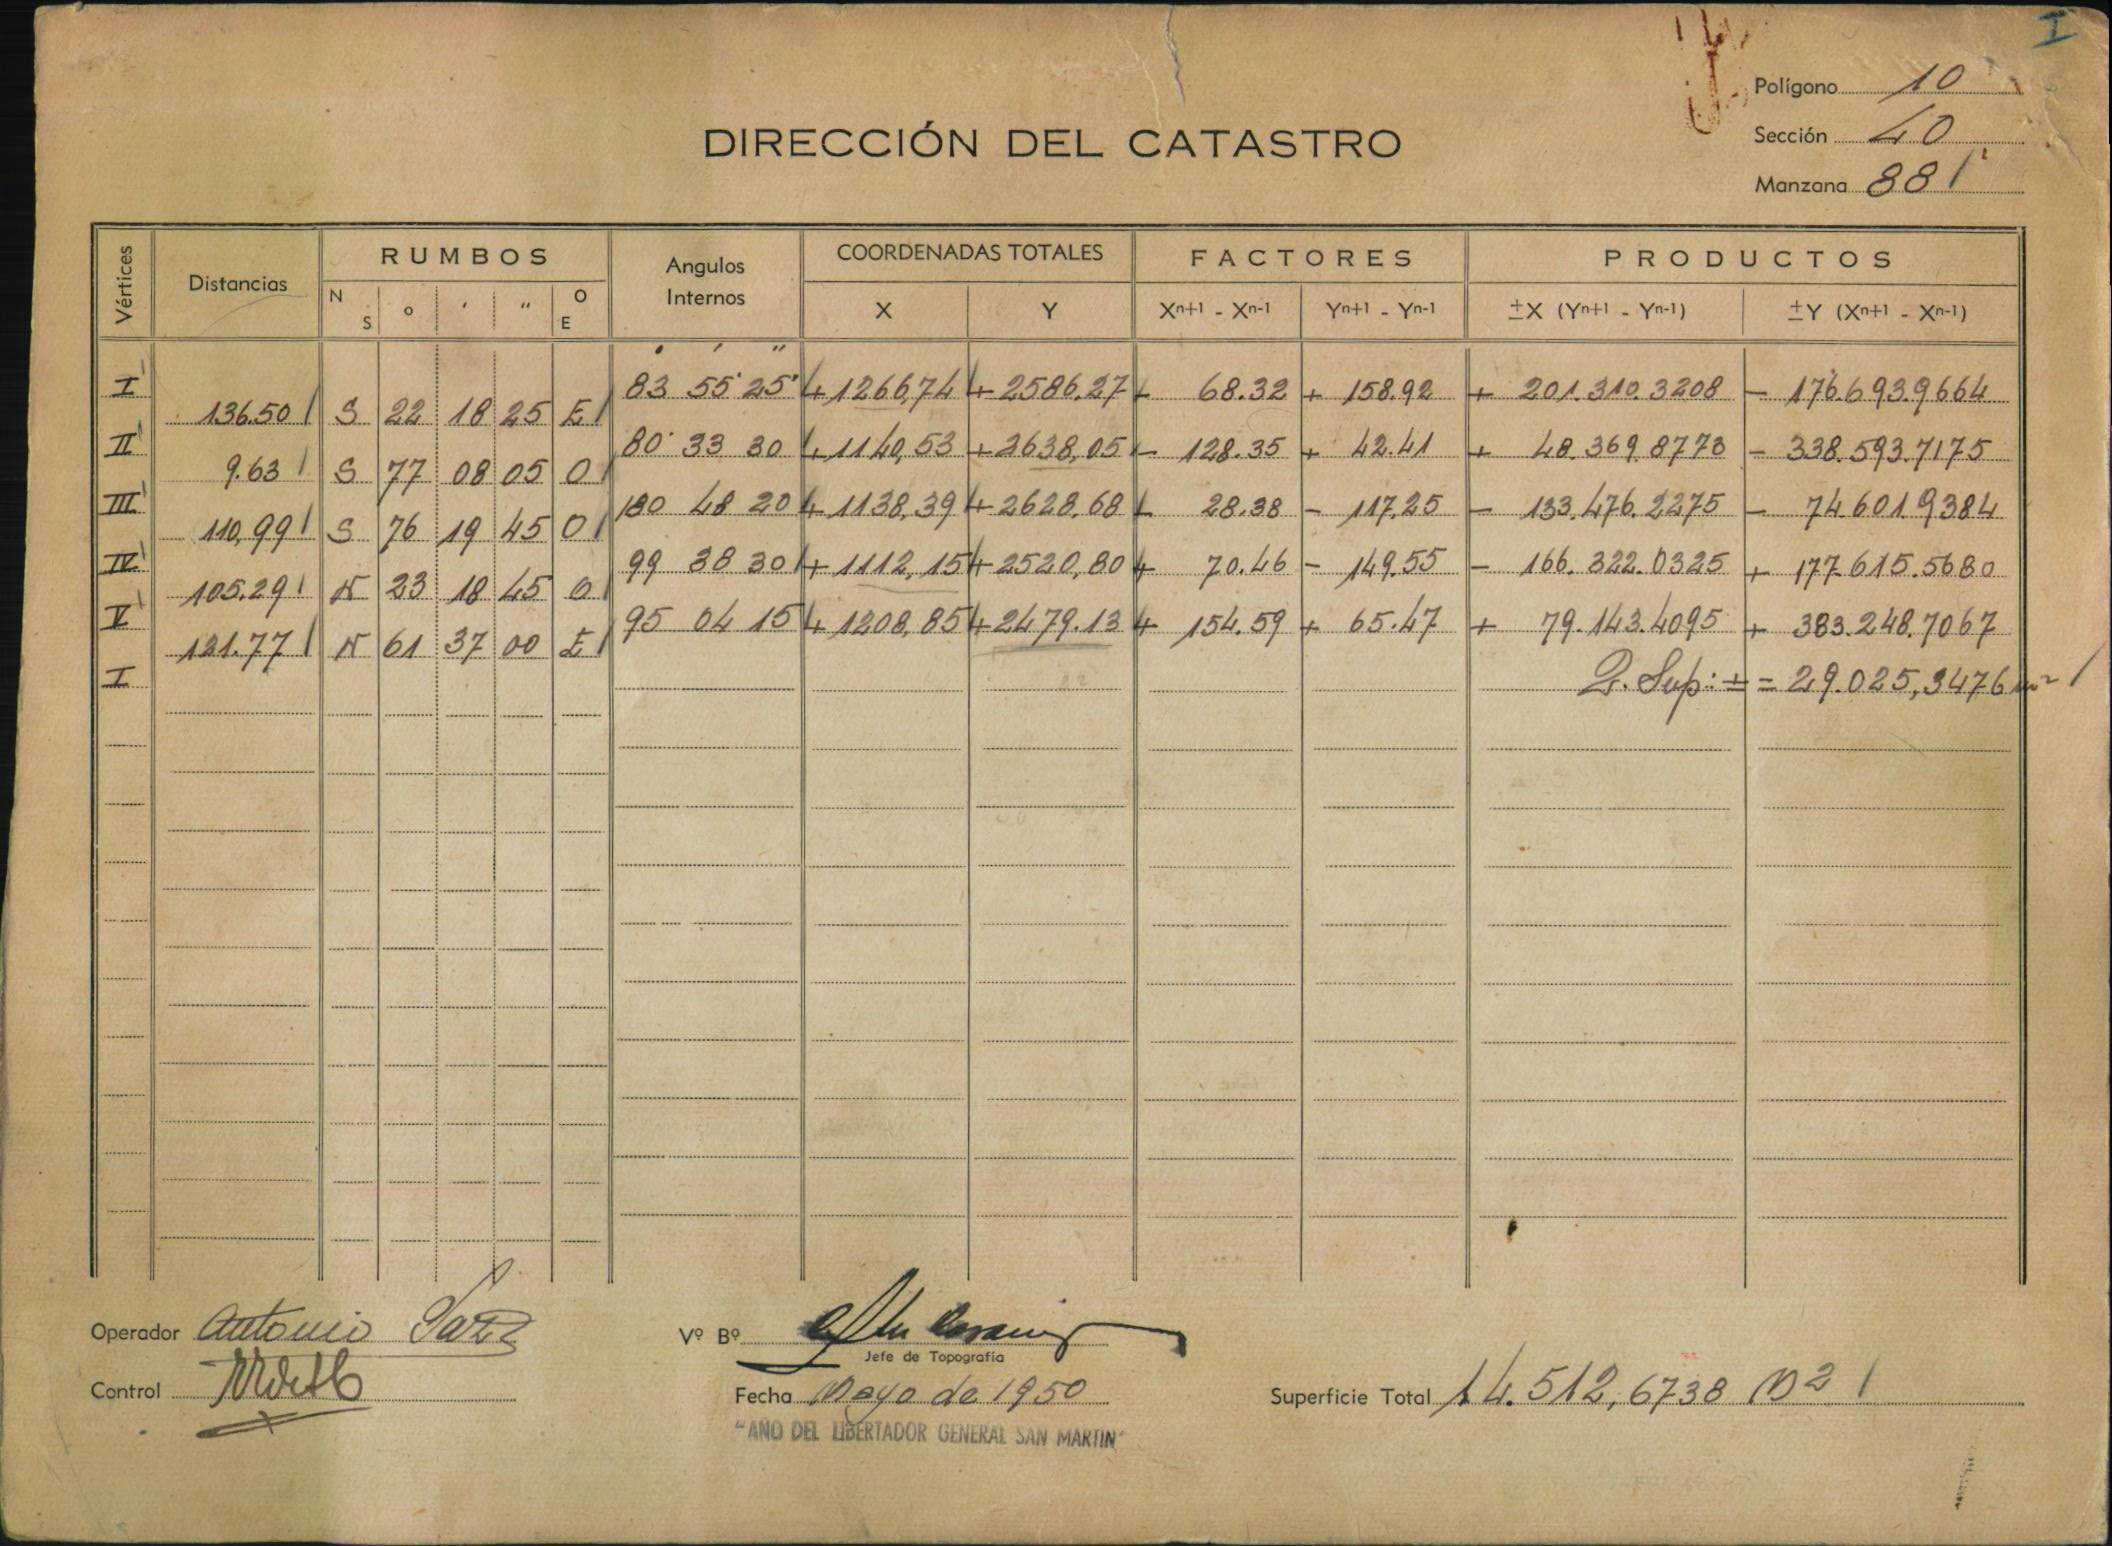 I
Polígono 10
Sección 40
DIRECCIÓN DEL CATASTRO
Manzana 88
Vértices Distancias RUMBOS Angulos Internos COORDENADAS TOTALES FACTORES PRODUCTOS
N S ° ′ ″ O E X Y Xⁿ⁺¹ - Xⁿ⁻¹ Yⁿ⁺¹ - Yⁿ⁻¹ ±X (Yⁿ⁺¹ - Yⁿ⁻¹) ±Y (Xⁿ⁺¹ - Xⁿ⁻¹)
° ′ ″
I 83 55 25 +1266,74 +2586,27 - 68.32 + 158.92 + 201.310.3208 - 176.693.9664
136.50 S 22 18 25 E
II 80 33 30 +1140,53 +2638,05 - 128.35 + 42.41 + 48.369.8773 - 338.593.7175
9.63 S 77 08 05 O
III 180 48 20 +1138,39 +2628.68 - 28.38 - 117.25 - 133.476.2275 - 74.601.9384
110,99 S 76 19 45 O
IV 99 38 30 +1112,15 +2520,80 + 70.46 - 149.55 - 166.322.0325 + 177.615.5680
105.29 N 23 18 45 O
V 95 04 15 +1208,85 +2479.13 + 154.59 + 65.47 + 79.143.4095 + 383.248.7067
121.77 N 61 37 00 E
I 2. Sup: ± = 29.025,3476 m²
Operador Antonio
Vº Bº
Jefe de Topografía
Control
Fecha Mayo de 1950
Superficie Total 14.512,6738 m²
"AÑO DEL LIBERTADOR GENERAL SAN MARTIN"